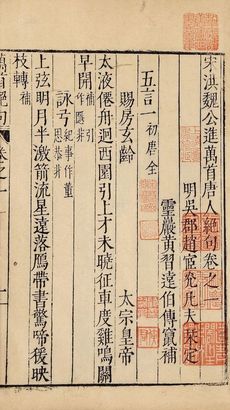 宋洪魏公進萬首唐人絕句卷之一
明吳郡趙宧光凡夫栞定
靈巖黃習遠伯傳竄補
五言一 初唐全
賜房玄齡 太宗皇帝
太液僊舟迥西園引上才未曉征車度雞鳴關
早開 補 引作隱非
詠弓 紀事作董思恭非
上弦明月半激箭流星遠落鴈帶書驚啼猿映
枝轉 補
萬首絕句 卷之一